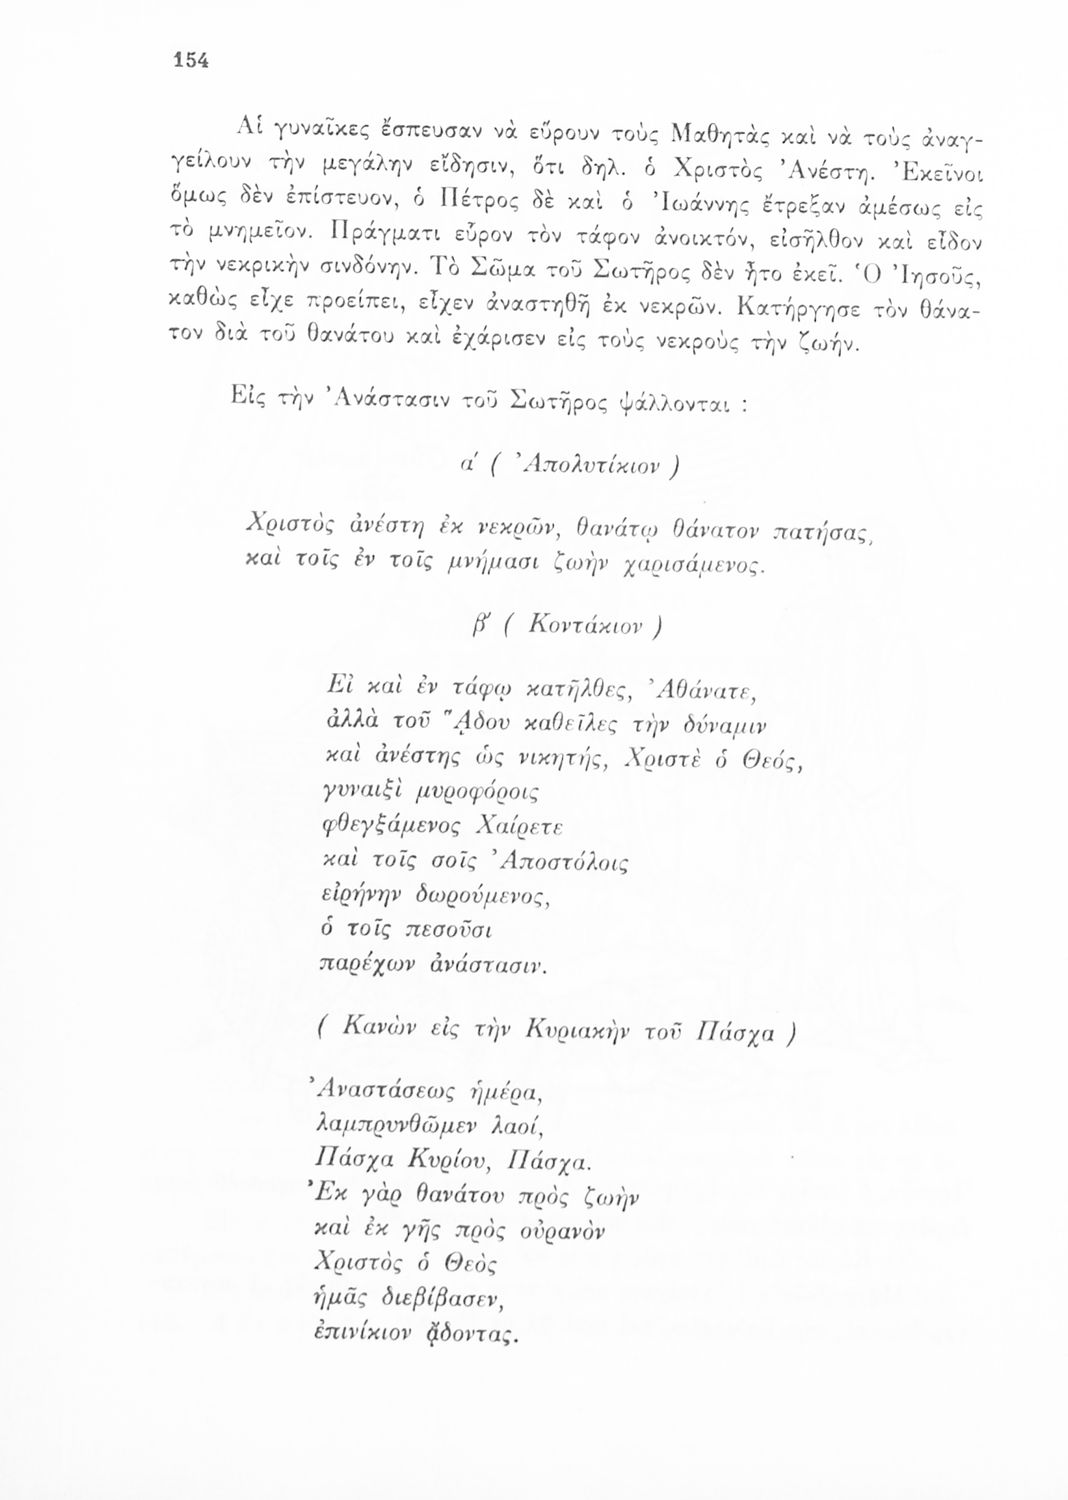 154
Αἱ γυναῖκες ἔσπευσαν νὰ εὕρουν τοὺς Μαθητὰς καὶ νὰ τοὺς ἀναγ-
γείλουν τὴν μεγάλην εἴδησιν, ὅτι δηλ. ὁ Χριστὸς Ἀνέστη. Ἐκεῖνοι
ὅμως δὲν ἐπίστευον, ὁ Πέτρος δὲ καὶ ὁ Ἰωάννης ἔτρεξαν ἀμέσως εἰς
τὸ μνημεῖον. Πράγματι εὗρον τὸν τάφον ἀνοικτόν, εἰσῆλθον καὶ εἶδον
τὴν νεκρικὴν σινδόνην. Τὸ Σῶμα τοῦ Σωτῆρος δὲν ἦτο ἐκεῖ. Ὁ Ἰησοῦς,
καθὼς εἶχε προείπει, εἶχεν ἀναστηθῆ ἐκ νεκρῶν. Κατήργησε τὸν θάνα-
τον διὰ τοῦ θανάτου καὶ ἐχάρισεν εἰς τοὺς νεκροὺς τὴν ζωήν.
Εἰς τὴν Ἀνάστασιν τοῦ Σωτῆρος ψάλλονται :
α΄ ( Ἀπολυτίκιον )
Χριστὸς ἀνέστη ἐκ νεκρῶν, θανάτῳ θάνατον πατήσας,
καὶ τοῖς ἐν τοῖς μνήμασι ζωὴν χαρισάμενος.
β΄ ( Κοντάκιον )
Εἰ καὶ ἐν τάφῳ κατῆλθες, Ἀθάνατε,
ἀλλὰ τοῦ ᾍδου καθεῖλες τὴν δύναμιν
καὶ ἀνέστης ὡς νικητής, Χριστὲ ὁ Θεός,
γυναιξὶ μυροφόροις
φθεγξάμενος Χαίρετε
καὶ τοῖς σοῖς Ἀποστόλοις
εἰρήνην δωρούμενος,
ὁ τοῖς πεσοῦσι
παρέχων ἀνάστασιν.
( Κανὼν εἰς τὴν Κυριακὴν τοῦ Πάσχα )
Ἀναστάσεως ἡμέρα,
λαμπρυνθῶμεν λαοί,
Πάσχα Κυρίου, Πάσχα.
Ἐκ γὰρ θανάτου πρὸς ζωὴν
καὶ ἐκ γῆς πρὸς οὐρανὸν
Χριστὸς ὁ Θεὸς
ἡμᾶς διεβίβασεν,
ἐπινίκιον ᾄδοντας.